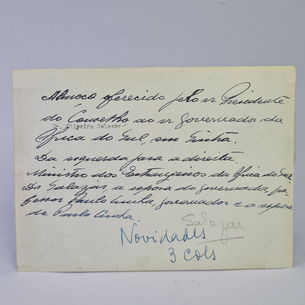 Almoço oferecido pelo sr Presidente
do Conselho ao sr Governador da
Oliveira Salazar
África do Sul, em Sintra.
Da esquerda para a direita
Ministro dos Estrangeiros da África do Sul
Salazar, a esposa do Governador,
Paulo Cunha, Governador e a esposa
de Paulo Cunha.
Salazar
Novidades
3 cols